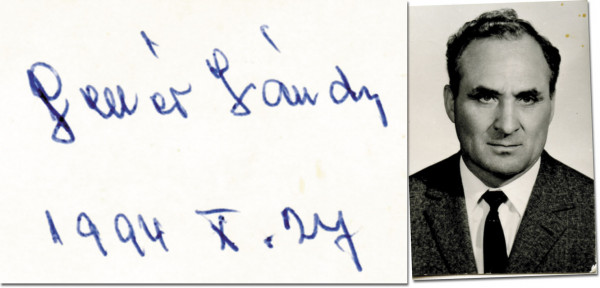 Gellér Sándor
1994 X. 27